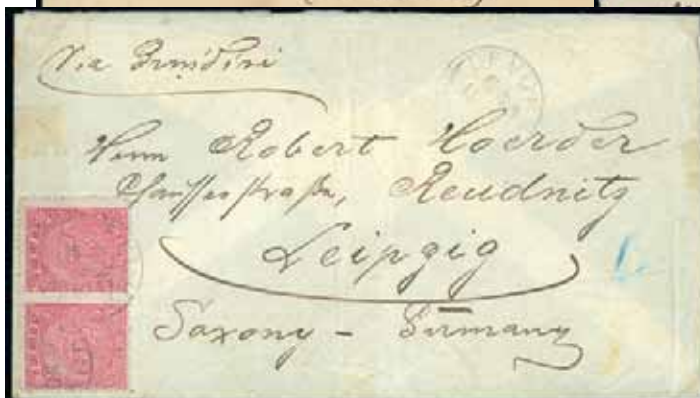 Via Brindisi
Herrn Robert Hoerder
Chausseestraße, Reudnitz
Leipzig
Saxony - Germany